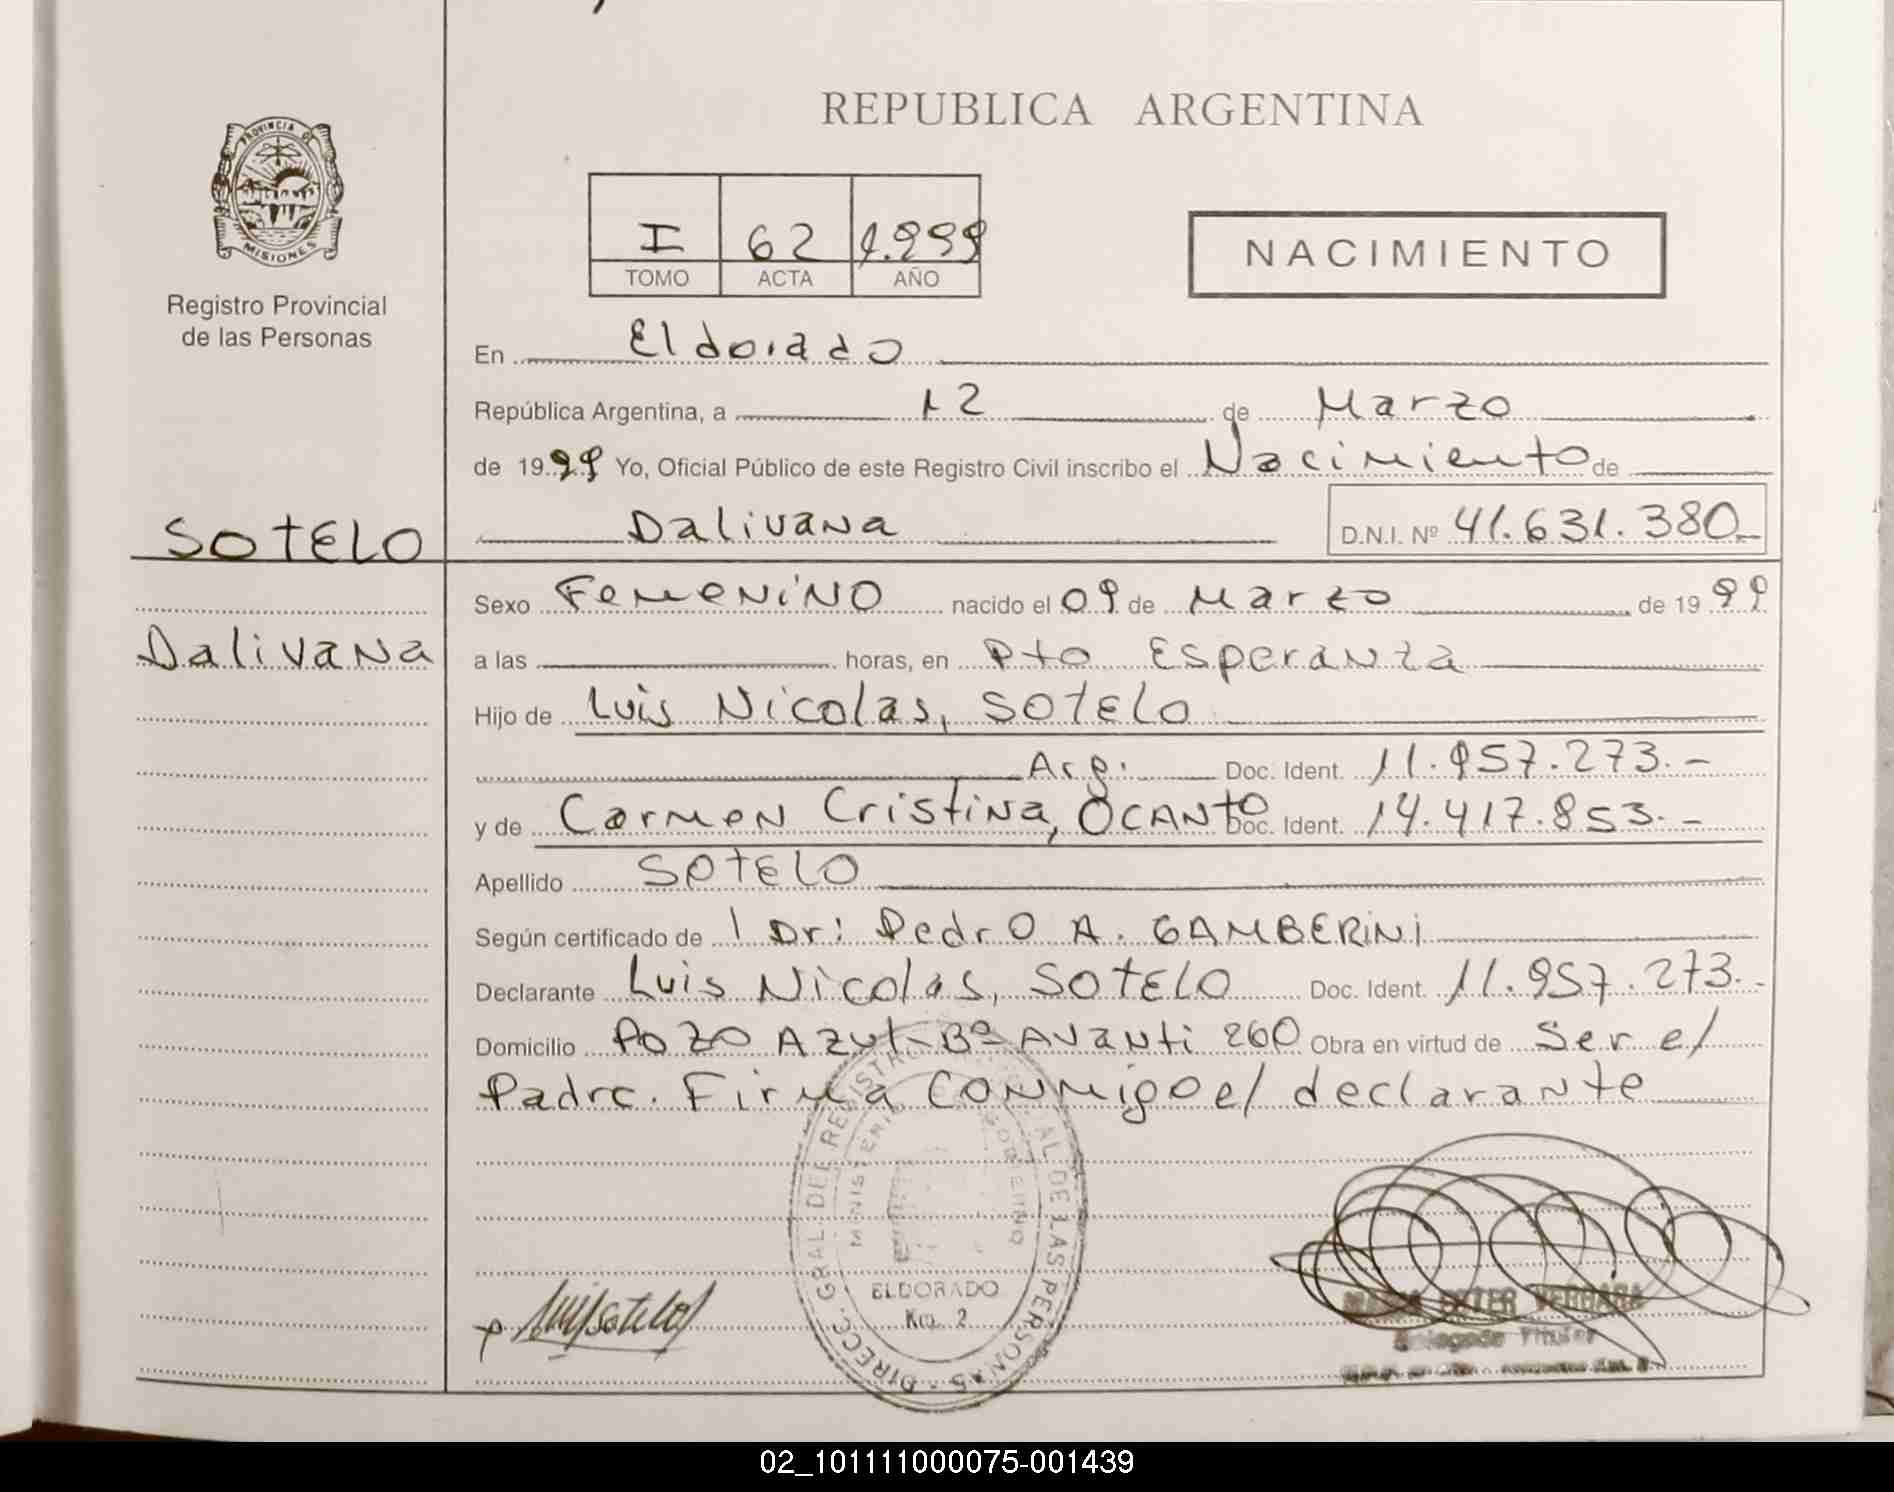 REPUBLICA ARGENTINA
PROVINCIA DE
MISIONES
Registro Provincial
de las Personas
I 62 1.999
TOMO ACTA AÑO
NACIMIENTO
En Eldorado
República Argentina, a 12 de Marzo
de 1999 Yo, Oficial Público de este Registro Civil inscribo el Nacimiento de
Dalivana D.N.I. Nº 41.631.380_
SOTELO
Dalivana
Sexo Femenino nacido el 09 de Marzo de 1999
a las horas, en Pto Esperanza
Hijo de Luis Nicolas, SOTELO
Arg. Doc. Ident. 11.957.273.-
y de Carmen Cristina, OCANTO Doc. Ident. 14.417.853.-
Apellido SOTELO
Según certificado de 1 Dr: Pedro A. GAMBERINI
Declarante Luis Nicolas, SOTELO Doc. Ident. 11.957.273.-
Domicilio Pozo Azul-Bº Avanti 260 Obra en virtud de Ser el
Padre. Firma conmigo el declarante
DIRECC. GRAL. DEL REGISTRO AL DE LAS PERSONAS
MINISTERIO GOBIERNO
ELDORADO
Km. 2
Luis sotelo
VERGARA
Delegada Titular
02_101111000075-001439